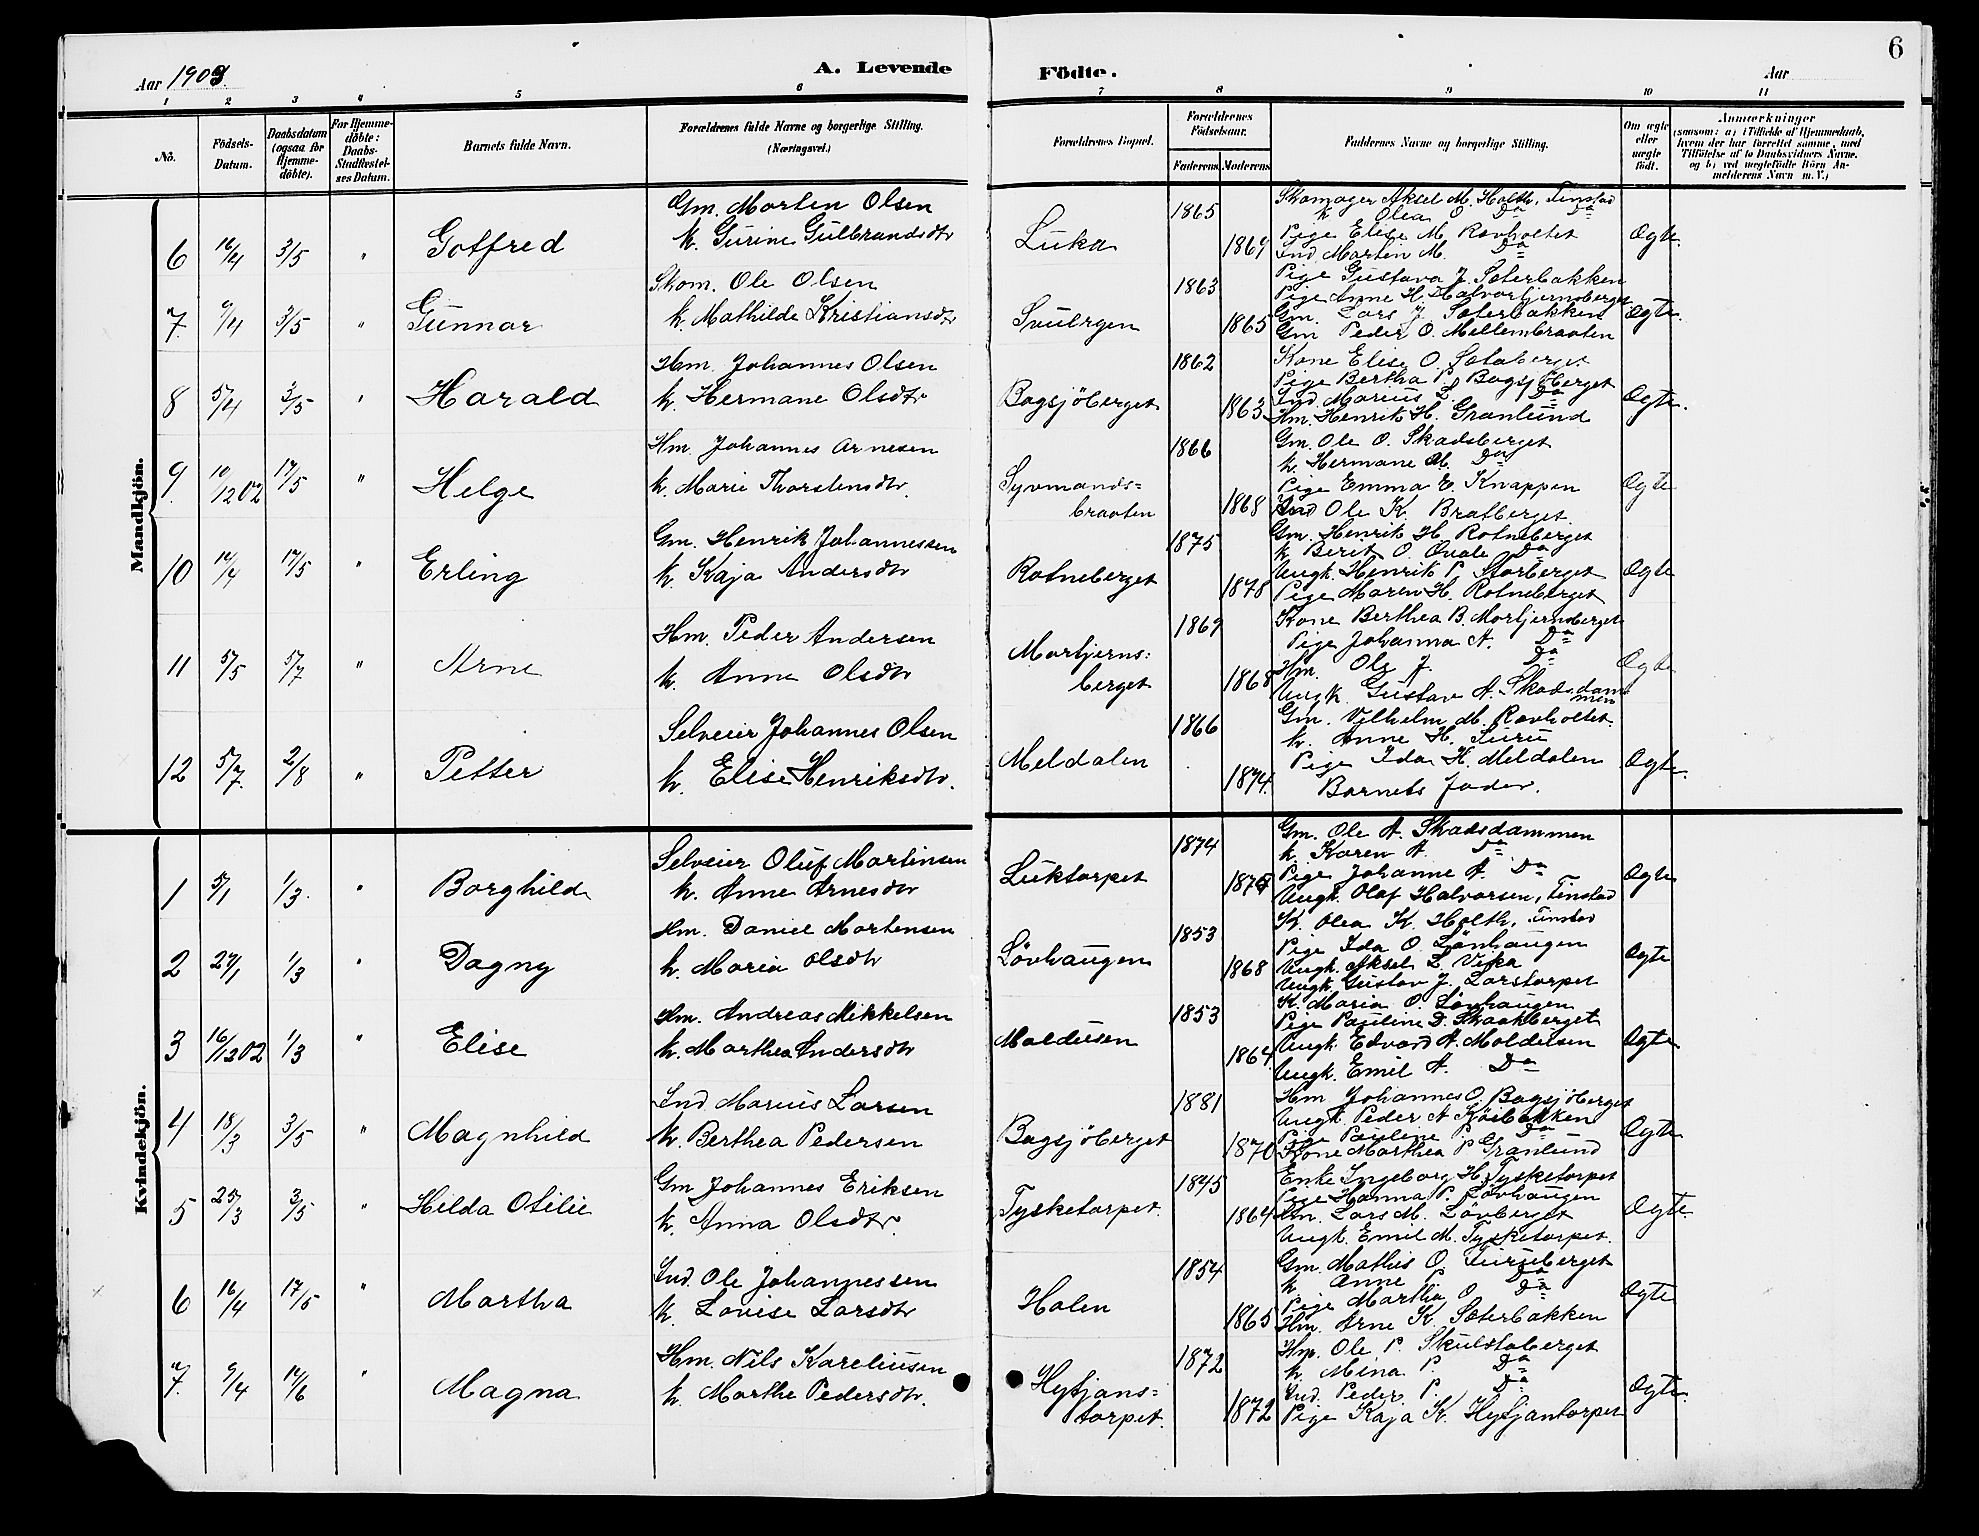 6
Aar 1903.
A. Levende Födte.
Aar
1 2 3 4 5 6 7 8 9 10 11
No.
Födsels-Datum.
Daabsdatum (ogsaa for Hjemme-döbte).
For Hjemme-döbte: Daabs-Stadfæstel-ses Datum.
Barnets fulde Navn.
Forældrenes fulde Navne og borgerlige Stilling. (Næringsvei.)
Forældrenes Bopæl.
Forældrenes Födselsaar.
Faderens. Moderens.
Faddernes Navne og borgerlige Stilling.
Om ægte eller uægte födt.
Anmærkninger
(saasom: a) i Tilfælde af Hjemmedaab, hvem der har forrettet samme, med Tilföielse af to Daabsvidners Navne. og b) ved uægtefödte Börn An-melderens Navn m. V.)
Mandkjön.
6 16/4 3/5 " Gotfred
Gm. Morten Olsen
k. Gurine Gulbrandsdtr
Luka 1865 1869
Skomager Aksel M. Holth, Finstad
k. Olea O Do Do
Pige Elise M. Ravholtet
Ind. Martin M. Do
Ægte.
7. 9/4 3/5 " Gunnar
Skom. Ole Olsen
k. Mathilde Kristiansdtr
Svulryen 1863 1865
Pige Gustava J. Sæterbakken
Pige Anne H. Halvortjernsberget
Gm. Lars J. Sæterbakken
Gm Peder O. Mellembraaten
Ægte.
8 5/4 3/5 " Harald
Hm. Johannes Olsen
k. Hermane Olsdtr
Bagsjöberget 1862 1863
Kone Elise O. Sætaberget
Pige Bertha P. Bagsjöberget
Ind. Marius L. Do
Hm. Henrik H. Granlund
Ægte.
9. 10/12 02 17/5 " Helge
Hm. Johannes Arnesen
k. Marie Thorstensdtr.
Syvmands=
braaten 1866 1868
Gm. Ole O. Skadsberget
k. Hermane M. Do
Pige Emma E. Knappen
Ind Ole K. Bratberget.
Ægte
10 12/4 17/5 " Erling
Gm. Henrik Johannessen
k. Kaja Andersdtr
Rotneberget 1875 1878
Gm. Henrik H. Rotneberget
k. Berit O. Ovale Do
Ungk. Henrik P. Storberget
Pige Maren H. Rotneberget
Ægte
11 5/5 5/7 " Arne
Hm. Peder Andersen
k. Anne Olsdtr
Mortjerns=
berget 1869 1868
Kone Berthea B. Mortjernsberget
Pige Johanna A. Do
Hm. Ole J. Do
Ungk. Gustav A. Skadsdam
men
Ægte
12 5/7. 2/8 " Petter
Selveier Johannes Olsen
k. Elise Henriksdtr.
Meldalen 1866 1874.
Gm. Vilhelm M. Ravholtet
k. Anne H. Furu
Pige Ida H. Meldalen
Barnets Fader.
Ægte.
Kvindekjön.
1 5/1 1/3. " Borghild
Selveier Oluf Martinsen
k. Anne Arnesdtr
Luktorpet 1874
Gm. Ole A. Skadsdammen
k. Karen A. Do
Pige Johanne A. Do
Ungk. Olaf Halvorsen, Finstad
Ægte
2 27/1 1/3 " Dagny
Hm. Daniel Mortensen
k. Maria Olsdtr
Lövhaugen 1853 1868
K. Olea K. Holth, Finstad
Pige Ida O. Lövhaugen
Ungk. Aksel L. Vika
Ungk. Gustav J. Larstorpet
Ægte
3 16/12 02 1/3 " Elise
Hm. Andreas Mikkelsen
k. Marthea Andersdtr
Moldusen 1853 1864
K. Maria O. Lövhaugen
Pige Pauline D. Skaakberget
Ungk. Edvard A. Moldusen
Ungk. Emil A. Do
Ægte
4 18/3 3/5 " Magnhild
Ind. Marius Larsen
k. Berthea Pedersen
Bagsjöberget 1881 1870
Hm. Johannes O. Bagsjöberget
Ungk. Peder A Köibakken
Pige Pauline P. Do
Kone Marthea P. Granlund
Ægte
5 25/3 3/5 " Hilda Otilie
Gm Johannes Eriksen
k. Anna Olsdtr.
Tysketorpet. 1845 1864
Enke Ingeborg H. Tysketorpet
Pige Hanna P. Lövhaugen
Hm. Lars M. Lövberget
Ungk. Emil M. Tysketorpet.
Ægte.
6 16/4 17/5 " Martha
Ind. Ole Johannessen
k. Lovise Larsdtr
Holen 1854 1865
Gm. Mathis O. Furuberget
k Anne P. Do
Pige Martha O Do
Hm. Arne K. Sæterbakken
Ægte
7. 9/4 14/6 " Magna
Hm. Nils Kareliusen
k. Marthe Pedersdtr.
Hytjans=
torpet. 1872 1872
Hm. Ole P. Skulstaberget
k. Mina P. Do
Ind. Peder P. Do
Pige Kaja K. Hytjantorpet
Ægte.